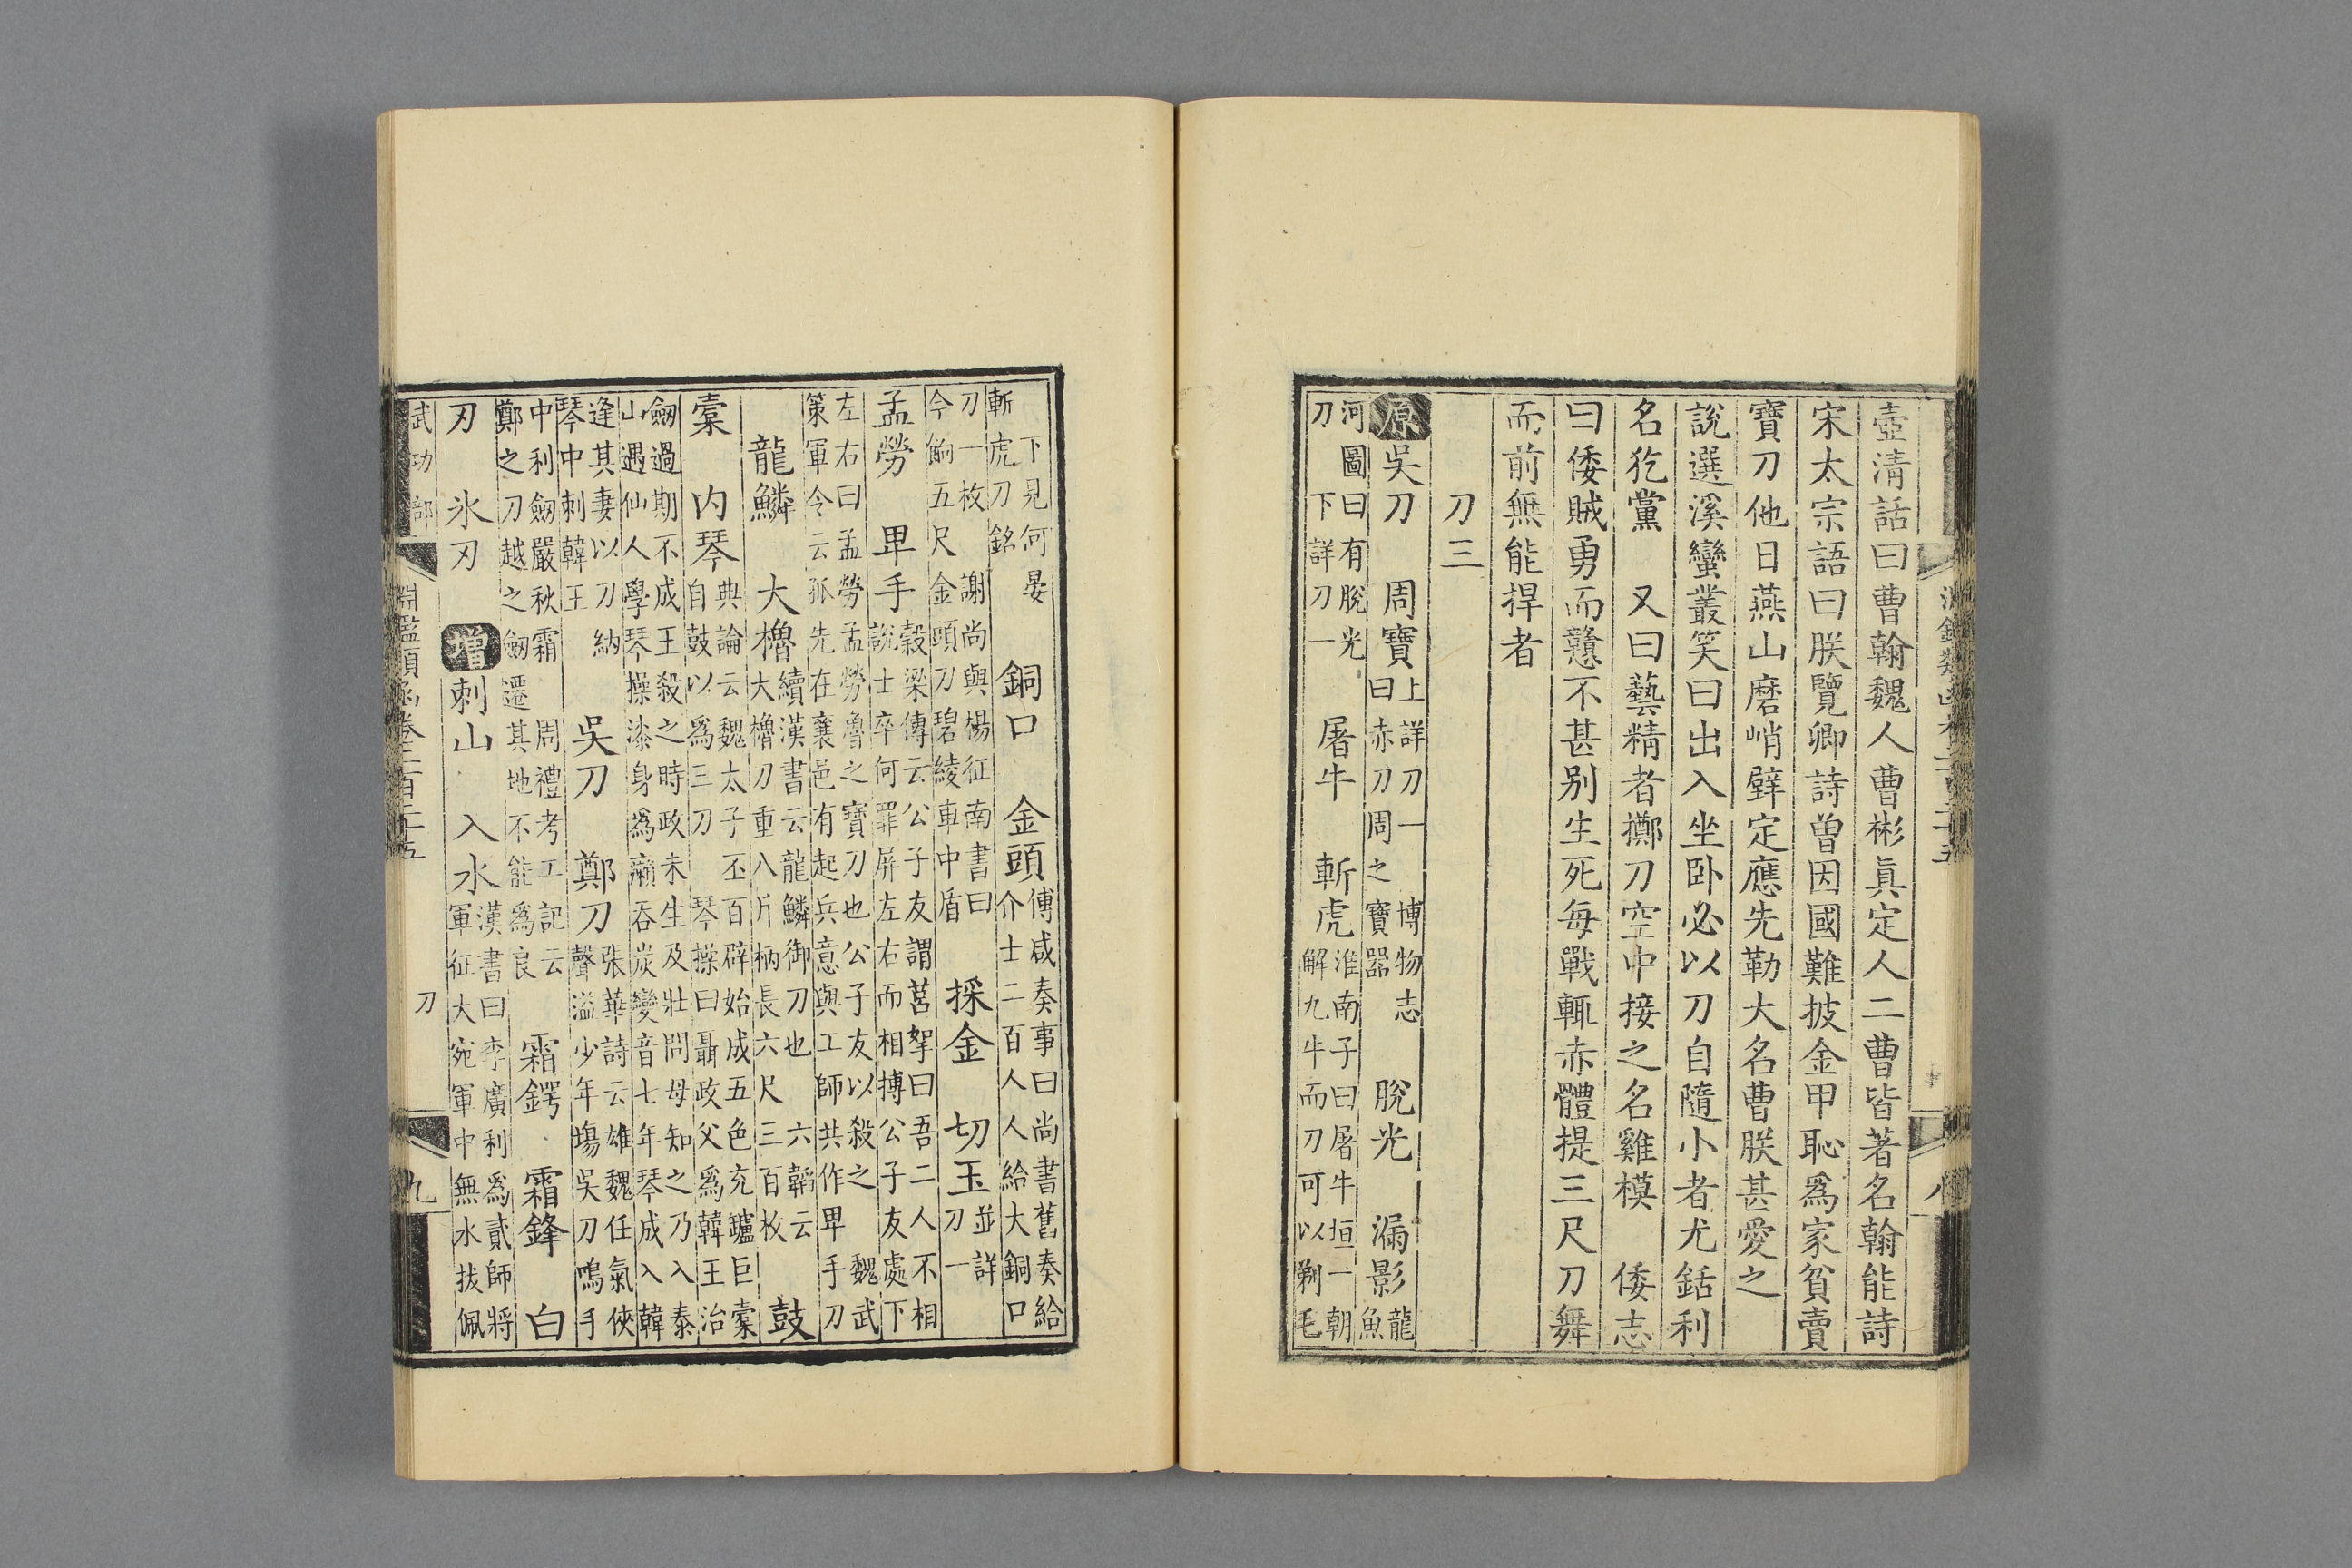 壺清話曰曹翰魏人曹彬眞定人二曹皆著名翰能詩
宋太宗語曰朕覽卿詩曽因國難披金甲恥爲家貧賣
寶刀他日燕山磨峭壁定應先勒大名曹朕甚愛之
說選溪蠻叢笑曰出入坐卧必以刀自隨小者尤銛利
名犵黨　又曰藝精者擲刀空中接之名雞模　倭志
曰倭賊勇而戇不甚别生死每戰輒赤體提三尺刀舞
而前無能捍者
刀三
原吳刀　周寶上詳刀一　博物志
曰赤刀周之寶器　脫光　漏影龍
魚
河圖曰有脫光
刀　下詳刀一　屠牛　斬虎淮南子曰屠牛垣一朝
解九牛而刀可以剃毛
下見何晏
斬虎刀銘　銅口　金頭傅咸奏事曰尚書舊奏給
介士二百人人給大銅口
刀一枚　謝尚與楊征南書曰
今餉五尺金頭刀碧綾車中盾　採金　切玉並詳
刀一
孟勞　畢手榖梁傳云公子友謂莒挐曰吾二人不相
說士卒何罪屏左右而相搏公子友處下
左右曰孟勞孟勞魯之寶刀也公子友以殺之　魏武
策軍令云孤先在襄邑有起兵意與工師共作畢手刀
龍鱗　大櫓續漢書云龍鱗御刀也　六韜云
大櫓刀重八斤柄長六尺三百枚　鼓
櫜　内琴典論云魏太子丕百辟始成五色充鑪巨櫜
自鼓以爲三刀　琴操曰聶政父爲韓王治
劒過期不成王殺之時政未生及壯問母知之乃入泰
山遇仙人學琴操漆身爲癩吞炭變音七年琴成入韓
逢其妻以刀納
琴中刺韓王　吳刀　鄭刀張華詩云雄魏任氣俠
聲溢少年塲吳刀鳴手
中利劒嚴秋霜　周禮考工記云
鄭之刀越之劒遷其地不能爲良　霜鍔　霜鋒　白
刃　氷刃　增刺山　入水漢書曰李廣利爲貳師將
軍征大宛軍中無水拔佩
武功部　淵鑑類函卷二百二十五　刀　九